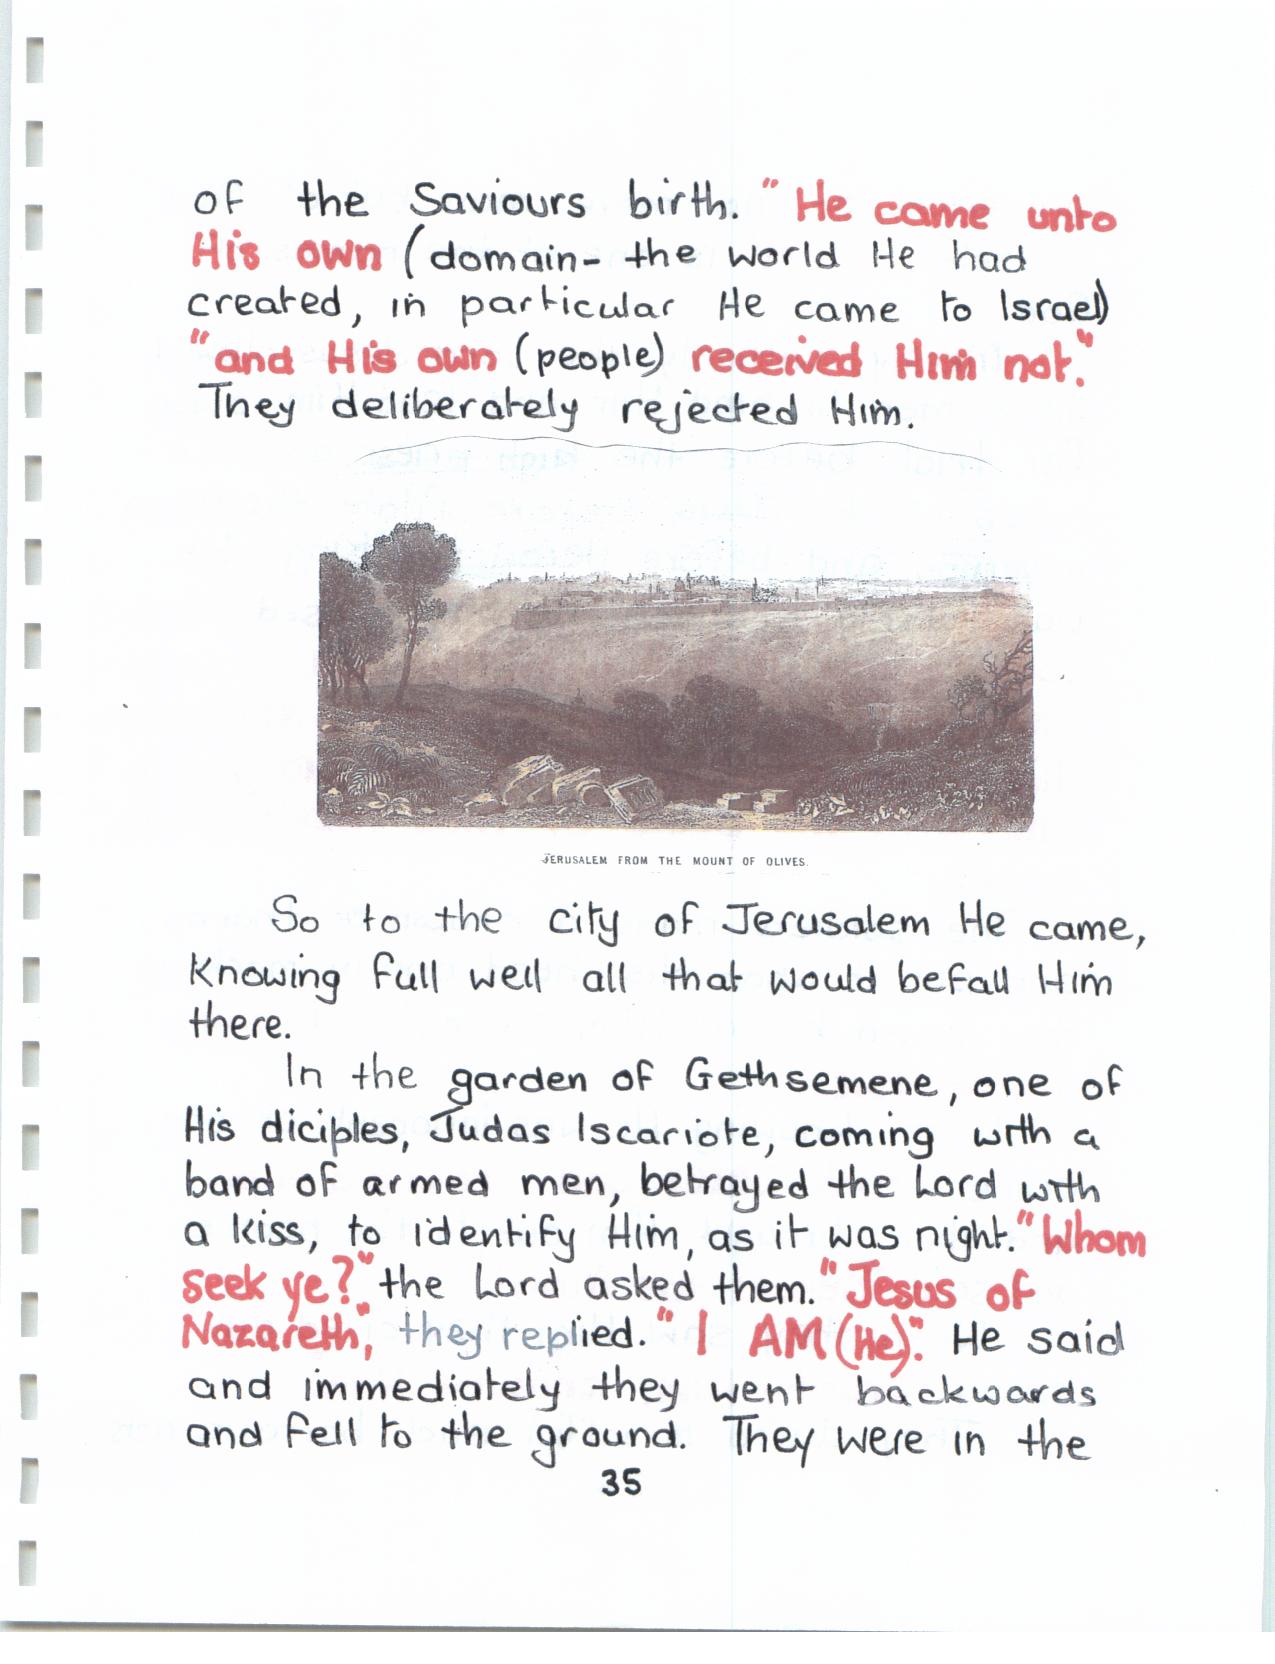 of the Saviours birth. "He came unto
His own (domain- the world He had
created, in particular He came to Israel)
"and His own (people) received Him not."
They deliberately rejected Him.
JERUSALEM FROM THE MOUNT OF OLIVES.
So to the city of Jerusalem He came,
Knowing full well all that would befall Him
there.
In the garden of Gethsemene, one of
His diciples, Judas Iscariote, coming with a
band of armed men, betrayed the Lord with
a kiss, to identify Him, as it was night. "Whom
seek ye?" the Lord asked them. "Jesus of
Nazareth," they replied. "I AM (He)". He said
and immediately they went backwards
and fell to the ground. They were in the
35